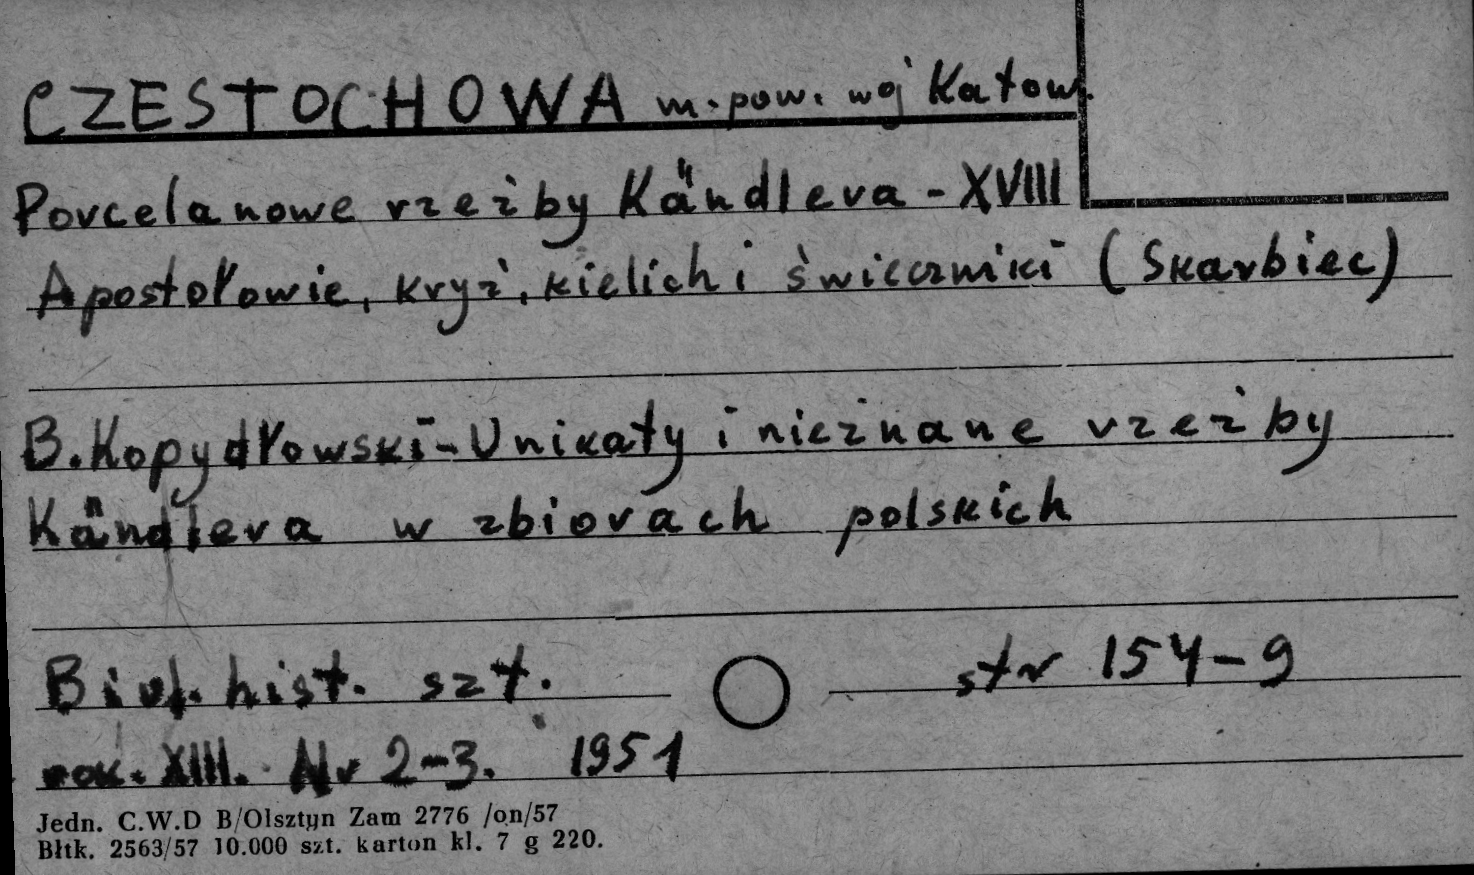 CZESTOCHOWA m. pow. woj Katow.
Porcelanowe rzeźby Kändlera - XVIII
Apostołowie, kryż, kielich i świeczniki (Skarbiec)
B. Kopydłowski - Unikaty i nieznane rzeźby
Kändlera w zbiorach polskich
Biul. hist. szt. str 154-9
rok. XIII. Nr 2-3. 1951
Jedn. C.W.D B/Olsztyn Zam 2776 /on/57
Błtk. 2563/57 10.000 szt. karton kl. 7 g 220.